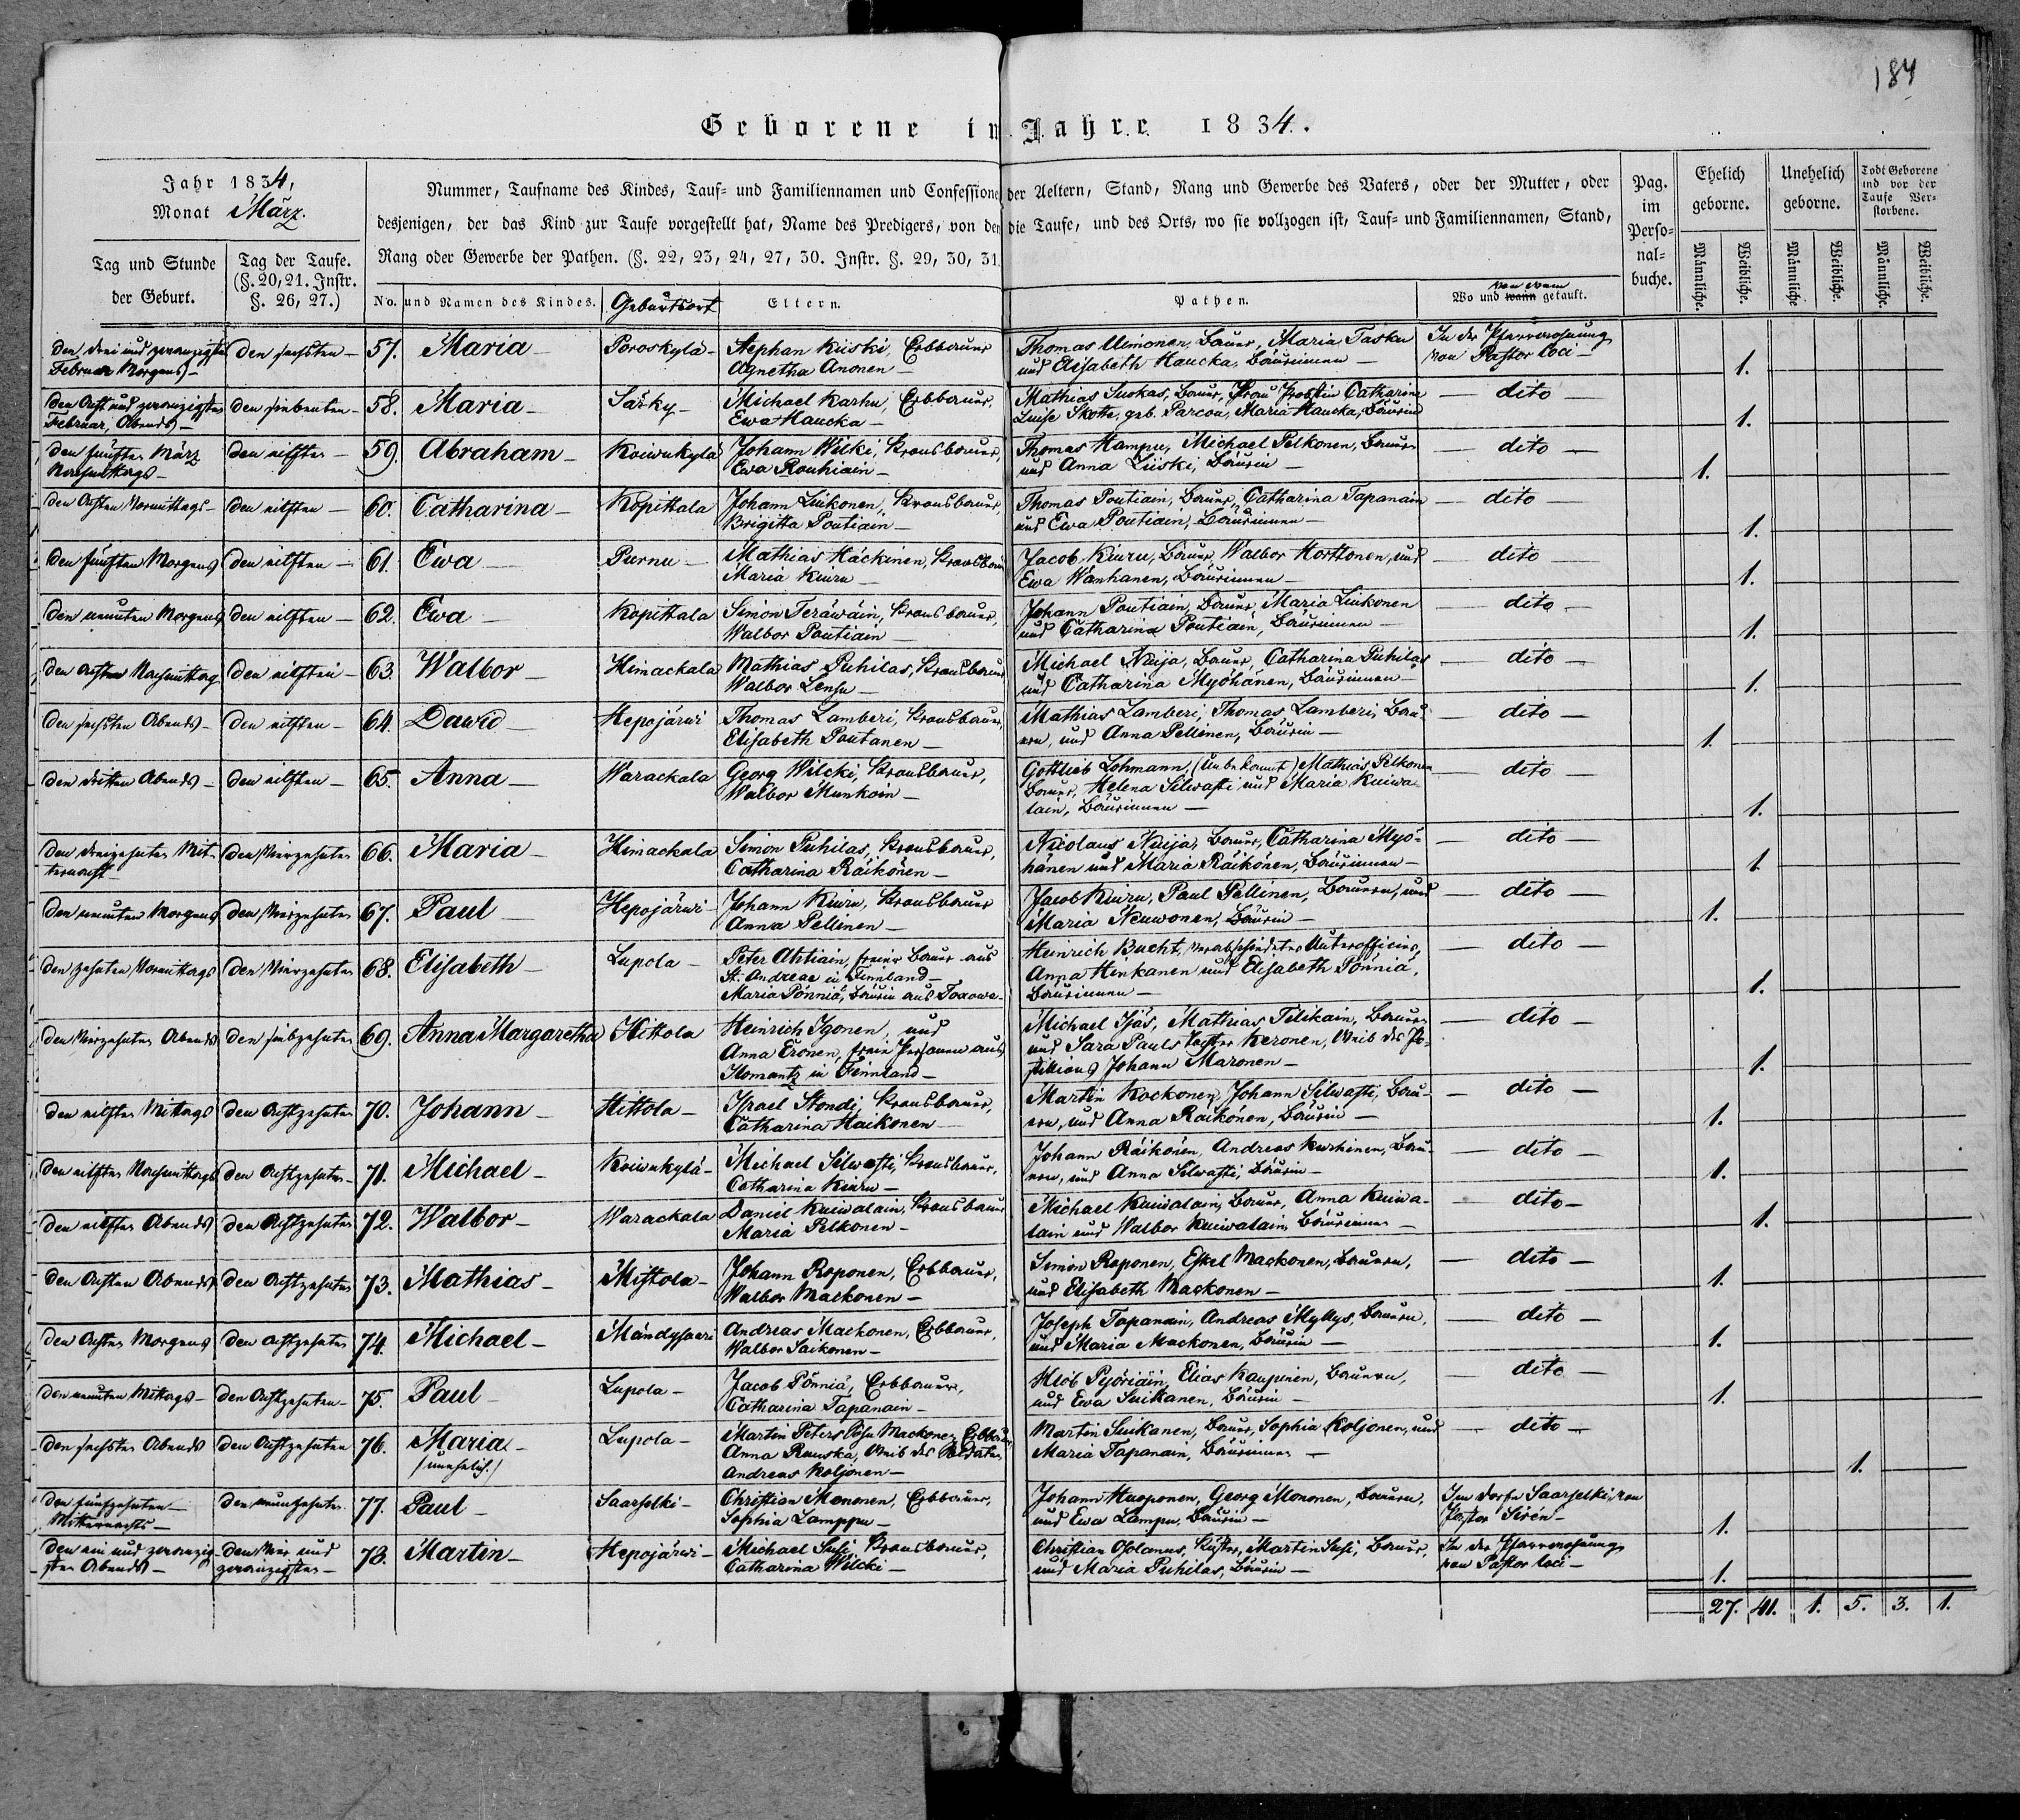 184
Geborene im Jahre 1834.
Jahr 1834,
Monat März.
Tag und Stunde der Geburt.
Tag der Taufe. (§. 20, 21. Instr. §. 26, 27.)
Nummer, Taufname des Kindes, Tauf- und Familiennamen und Confessione der Aeltern, Stand, Rang und Gewerbe des Vaters, oder der Mutter, oder
desjenigen, der das Kind zur Taufe vorgestellt hat, Name des Predigers, von dem die Taufe, und des Orts, wo sie vollzogen ist, Tauf- und Familiennamen, Stand,
Rang oder Gewerbe der Pathen. (§. 22, 23, 24, 27, 30. Instr. §. 29, 30, 31.
No. und Namen des Kindes.
Geburtsort
Eltern.
Pathen.
von wem
Wo und wann getauft.
Pag. im Perso-nal-buche.
Ehelich geborne.
Unehelich geborne.
Todt Geborene und vor der Taufe Ver-storbene.
Männliche. Weibliche. Männliche Weibliche. Männliche. Weibliche.
den drei und zwanzigsten den sechsten – 57. Maria – Poroskylä – Stephan Kiiski, Erbbauer Thomas Mimonen, Bauer, Maria Tasku In der Pfarrwohnung
Februar Morgens – Agnetha Anonen – und Elisabeth Haucka, Bäurinnen – von Pastor loci – 1.
den Acht und zwanzigsten den siebenten – 58. Maria – Särky – Michael Karhu, Erbbauer, Mathias Suokas, Bauer, Frau Pröbstin Catharina – dito –
Februar, Abends – Ewa Haucka – Luise Skotte, geb. Parcou, Maria Haucka, Bäurin 1.
den fünften März den eilften – 59. Abraham – Koiwukylä Johann Wilki, Kronsbauer, Thomas Hampu, Michael Pelkonen, Bauern – dito –
Nachmittags – Ewa Rouhiain – und Anna Liiski, Bäurin – 1.
den Achten Vormittags – den eilften – 60. Catharina – Kopittala Johann Liukonen, Kronsbauer, Thomas Poutiain, Bauer, Catharina Tapanain – dito
Brigitta Poutiain – und Ewa Poutiain, Bäurinnen – 1.
den fünften Morgens den eilften – 61. Ewa – Purnu – Mathias Häckinen, Kronsbauer Jacob Kiuru, Bauer, Walbor Korttonen, und – dito –
Maria Kiuru – Ewa Wanhanen, Bäurinnen – 1.
den neunten Morgens den eilften – 62. Ewa – Kopittala Simon Teräwäin, Kronsbauer, Johann Poutiain, Bauer, Maria Liukonen – dito –
Walbor Poutiain – und Catharina Poutiain, Bäurinnen – 1.
den Achten Nachmittag den eilften – 63. Walbor – Himackala Mathias Puhilas, Kronsbauer Michael Nuija, Bauer, Catharina Puhilas – dito –
Walbor Lensu – und Catharina Myöhänen, Bäurinnen – 1.
den sechsten Abends – den eilften – 64. Dawid – Hepojärwi Thomas Lamberi, Kronsbauer, Mathias Lamberi, Thomas Lamberi, Bau- – dito –
Elisabeth Poutanen – ern, und Anna Pellinen, Bäurin – 1.
den dritten Abends – den eilften – 65. Anna – Warackala Georg Wilcki, Kronsbauer, Gottlieb Lohmann, (Unbekannt) Mathias Pelkonen – dito –
Walbor Munkoin – Bauer, Helena Silwasti und Maria Kuiwa-
lain, Bäurinnen – 1.
den dreizehnten Mit- den Vierzehnten 66. Maria – Himackala Simon Puhilas, Kronsbauer, Nicolaus Nuija, Bauer, Catharina Myö- – dito –
ternacht – Catharina Räikönen – hänen und Maria Räikönen, Bäurinnen – 1.
den neunten Morgens den Vierzehnten 67. Paul – Hepojärwi – Johann Kiuru, Kronsbauer Jacob Kiuru, Paul Pellinen, Bauern, und – dito –
Anna Pellinen – Maria Neuwonen, Bäurin – 1.
den zehnten Vormittags den Vierzehnten 68. Elisabeth – Lupola – Peter Ahtiain, freier Bauer aus Heinrich Bucht, verabschiedeter Unterofficier, – dito –
St. Andreae in Finnland – Anna Hinkanen und Elisabeth Pönniä,
Maria Pönniä, Bäurin aus Toxowa – Bäurinnen – 1.
den Vierzehnten Abends den siebzehnten 69. Anna Margaretha Hittola Heinrich Igonen, und Michael Isäs, Mathias Tilikain, Bauern – dito –
Anna Eronen, freie Personen aus und Sara Pauls Tochter Keronen, Weib des Po-
Ilomantz in Finnland – stillions Johann Maronen – 1.
den eilften Mittags den Achtzehnten 70. Johann – Hittola – Israel Stondi, Kronsbauer, Martin Kockonen, Johann Silwasti, Bau- – dito –
Catharina Haikonen – ern, und Anna Räikönen, Bäurin – 1.
den eilften Nachmittags den Achtzehnten – 71. Michael – Koiwukylä – Michael Silwasti, Kronsbauer, Johann Räikönen, Andreas Kurhinen, Bau- – dito –
Catharina Kiuru – ern, und Anna Silwasti, Bäurin – 1.
den eilften Abends den Achtzehnten 72. Walbor – Warackala Daniel Kuiwalain, Kronsbauer Michael Kuiwalain, Bauer, Anna Kuiwa- – dito –
Maria Pelkonen – lain und Walbor Kuiwalain, Bäurinnen – 1.
den Achten Abends den Achtzehnten 73. Mathias – Mistola – Johann Roponen, Erbbauer, Simon Roponen, Eskel Mackonen, Bauern, – dito –
Walbor Mackonen – und Elisabeth Mackonen – 1.
den Achten Morgens den Achtzehnten 74. Michael – Mändysaari Andreas Mackonen, Erbbauer, Joseph Tapanain, Andreas Myllys, Bauern, – dito –
Walbor Saikonen – und Maria Mackonen, Bäurin – 1.
den neunten Mittags – den Achtzehnten – 75. Paul – Lupola – Jacob Pönniä, Erbbauer, Hiob Pyöriäin, Elias Kaupinen, Bauern, – dito –
Catharina Tapanain – und Ewa Suikanen, Bäurin – 1.
den sechsten Abends den Achtzehnten 76. Maria – Lupola – Martin Peters Sohn Mackonen, Erbbauer Martin Suikanen, Bauer, Sophia Koljonen, und – dito –
/unehelich./ Anna Ruuska, Weib des Soldaten Maria Tapanain, Bäurinnen –
Andreas Koljonen – 1.
den fünfzehnten – den neunzehnten 77. Paul – Saarselki – Christian Mononen, Erbbauer, Johann Huoponen, Georg Mononen, Bauern, Im Dorfe Saarselki, von
Mitternachts – Sophia Lamppu – und Ewa Lampu, Bäurin – Pastor Sirén – 1.
den ein und zwanzig- den Vier und 78. Martin – Hepojärwi – Michael Susi, Kronsbauer, Christian Oolanus, Küster, Martin Susi, Bauer, In der Pfarrwohnung
sten Abends – zwanzigsten – Catharina Wilcki – und Maria Puhilas, Bäurin – von Pastor loci – 1.
27. 41. 1. 5. 3. 1.